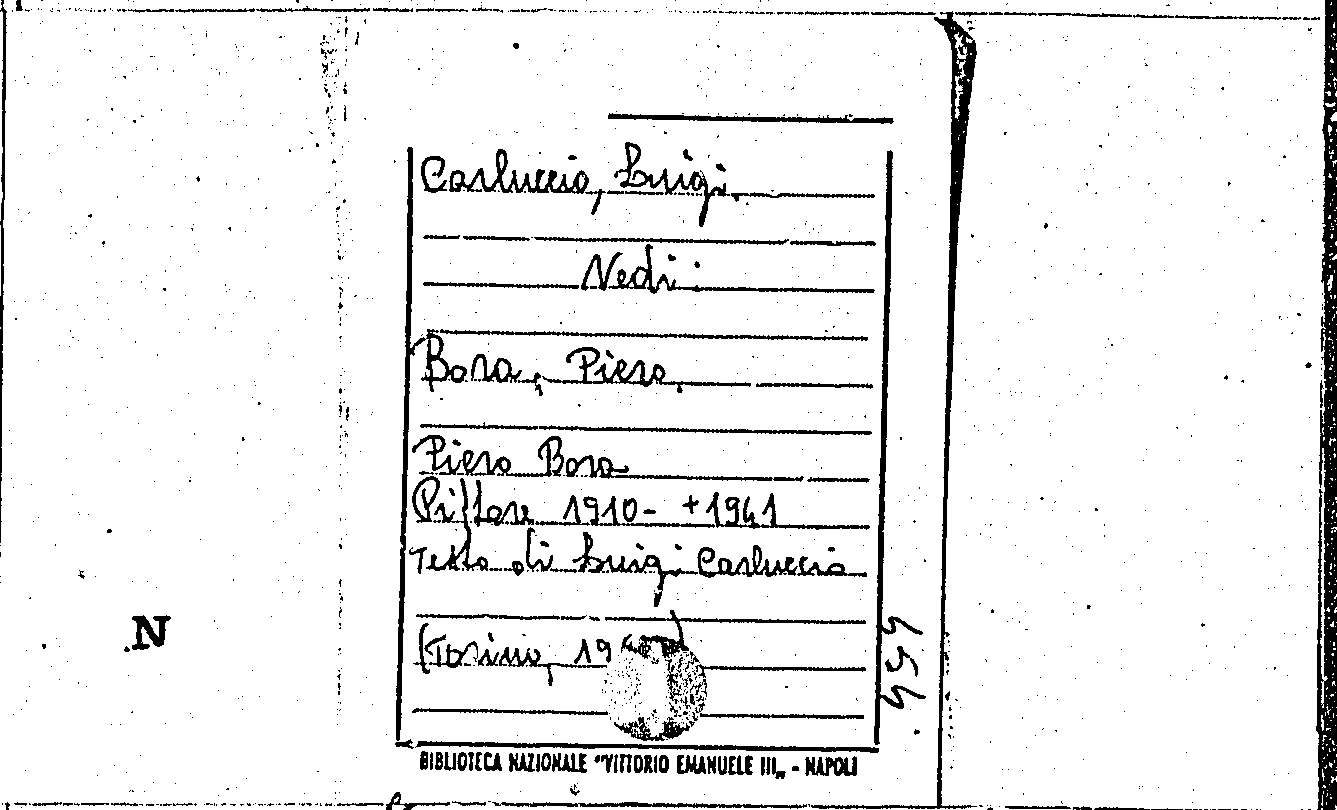 Carluccio, Luigi.
Vedi:
Bora, Piero.
Piero Bora
Pittore 1910- +1941
Testo di Luigi Carluccio
(Torino, 19
BIBLIOTECA NAZIONALE "VITTORIO EMANUELE III„ - NAPOLI
N